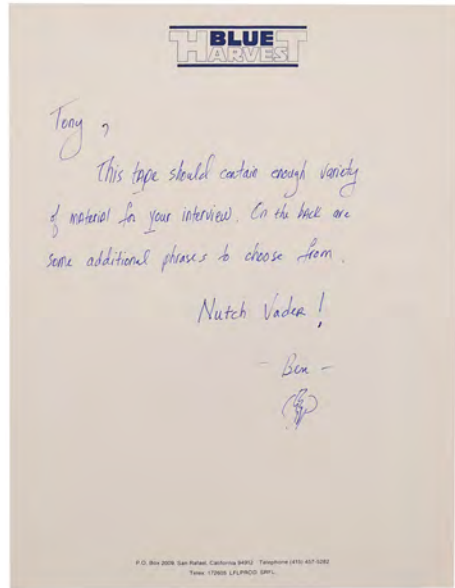 BLUE
HARVEST
Tony,
This tape should contain enough variety
of material for your interview. On the back are
some additional phrases to choose from.
Nutch Vader!
- Ben -
P.O. Box 2009, San Rafael, California 94912 Telephone (415) 457-5282
Telex